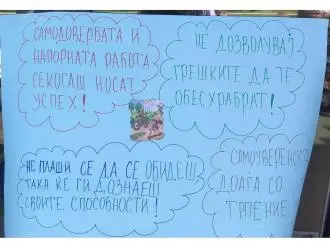 САМОДОВЕРБАТА И
НАПОРНАТА РАБОТА
СЕКОГАШ НОСАТ
УСПЕХ!
НЕ ДОЗВОЛУВАЈ
ГРЕШКИТЕ ДА ТЕ
ОБЕСХРАБРАТ!
НЕ ПЛАШИ СЕ ДА СЕ ОБИДЕШ
ТАКА ЌЕ ГИ ДОЗНАЕШ
СВОИТЕ СПОСОБНОСТИ!
ДОАЃА СО
ТРПЕНИЕ